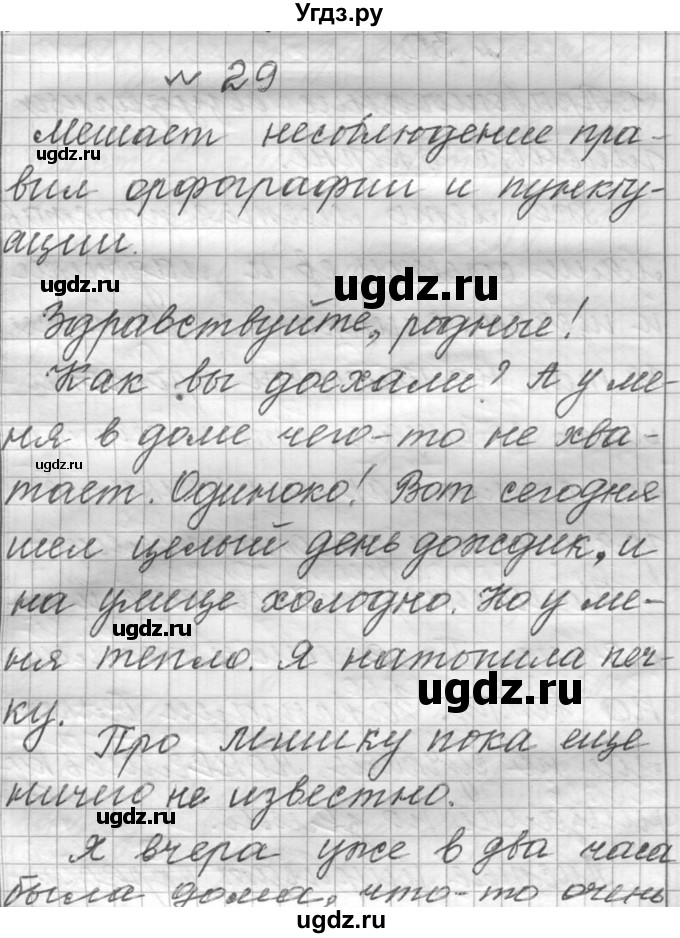 Угдз.ру
№ 29
Мешает несоблюдение пра-
вил орфографии и пункту-
ации.
Здравствуйте, родные!
Как вы доехали? А у ме-
ня в доме чего-то не хва-
тает. Одиноко! Вот сегодня
шел целый день дождик, и
на улице холодно. Но у ме-
ня тепло. Я натопила печ-
ку.
Про Мишку пока еще
ничего не известно.
Я вчера уже в два часа
была дома, что-то очень
ugdz.ru
ugdz.ru
ugdz.ru
ugdz.ru
ugdz.ru
ugdz.ru
ugdz.ru
ugdz.ru